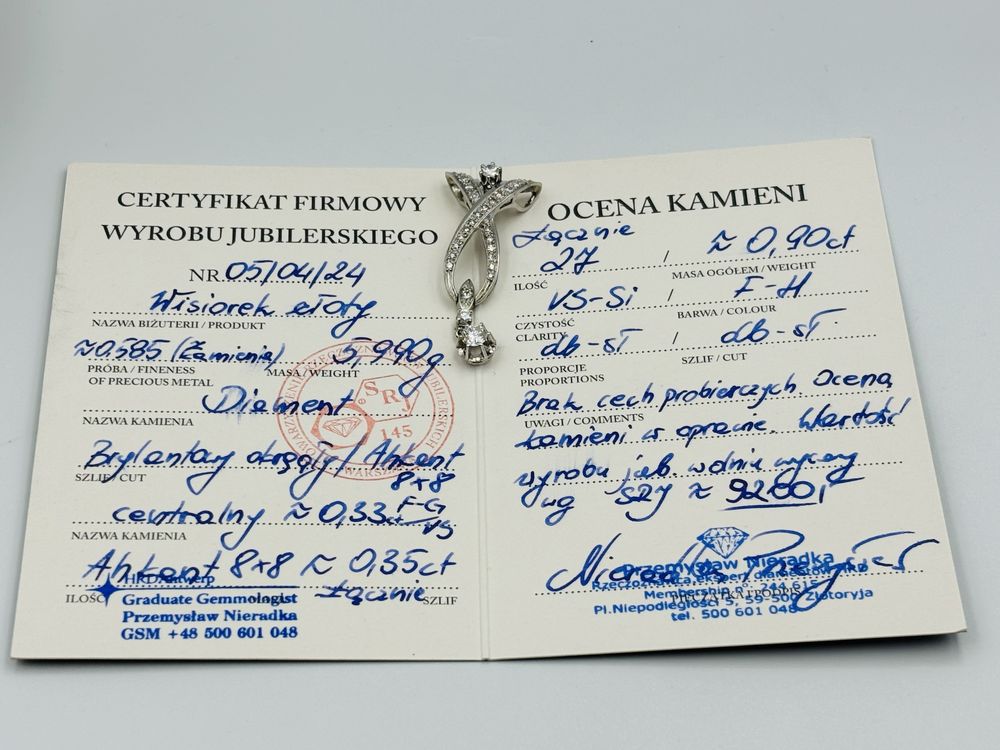 CERTYFIKAT FIRMOWY
WYROBU JUBILERSKIEGO
NR. 05/04/24
Wisiorek złoty
NAZWA BIŻUTERII / PRODUKT
≈0.585 (Łamienia) 5,990g
PRÓBA / FINENESS MASA / WEIGHT
OF PRECIOUS METAL
Diament
NAZWA KAMIENIA
Brylantowy okrągły / Ahtkant
8x8
SZLIF / CUT
centralny ≈ 0,33ct F-G/VS
NAZWA KAMIENIA
Ahtkant 8x8 ≈ 0,35ct
ILOŚĆ Łącznie SZLIF
HRD Antwerp
Graduate Gemmologist
Przemysław Nieradka
GSM +48 500 601 048
SRJ
145
OCENA KAMIENI
Łącznie
27 / ≈ 0,90ct
ILOŚĆ MASA OGÓŁEM / WEIGHT
VS-Si / F-H
CZYSTOŚĆ BARWA / COLOUR
CLARITY
db-sT / db-sT
PROPORCJE SZLIF / CUT
PROPORTIONS
Brak cech probierczych. Ocena
UWAGI / COMMENTS
kamieni w oprawie. Wartość
wyrobu jub. wolnie wyceny
wg SRJ ≈ 9200,-
Przemysław Nieradka
Pl.Niepodległości 5, 59-500 Złotoryja
tel. 500 601 048